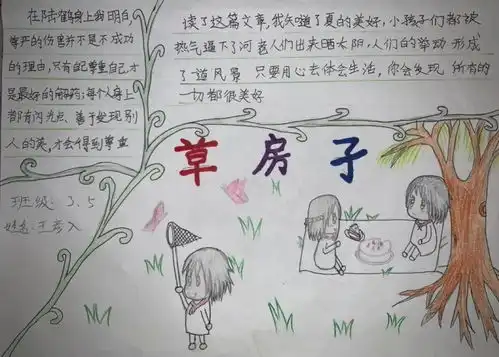 在陆鹤身上我明白
尊严的伤害并不是不成功
的理由,只有自己尊重自己,才
是最好的解药;每个人身上
都有闪光点,善于发现别
人的美,才会得到尊重
读了这篇文章,我知道了夏的美好,小孩子们都被
热气逼下了河,老人们出来晒太阳,人们的举动 形成
了道风景 只要用心去体会生活,你会发现 所有的
一切都很美好
草房子
班级:3.5
姓名:王彦入